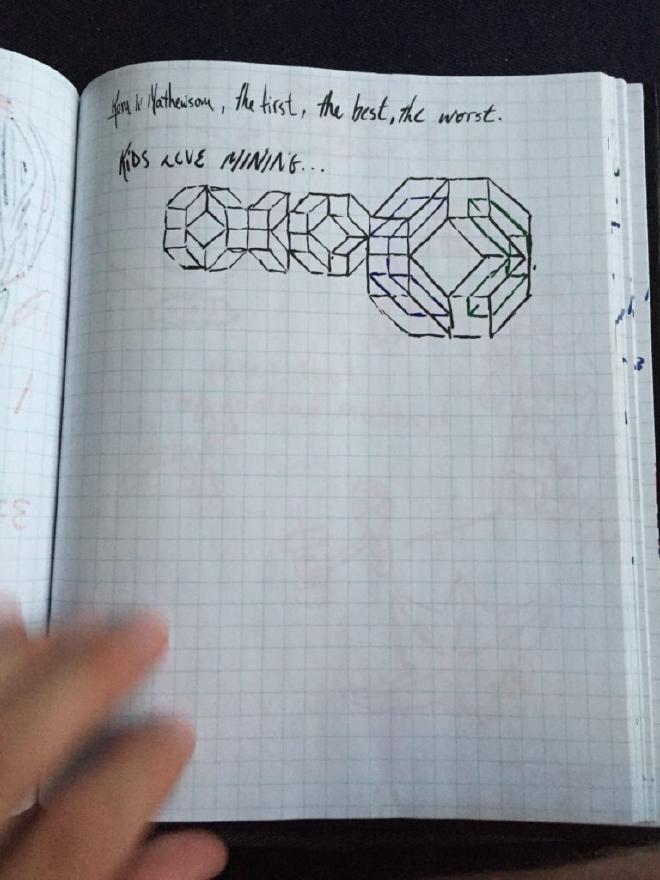 Mathewson, the first, the best, the worst.
KiDS LOVE MINING...